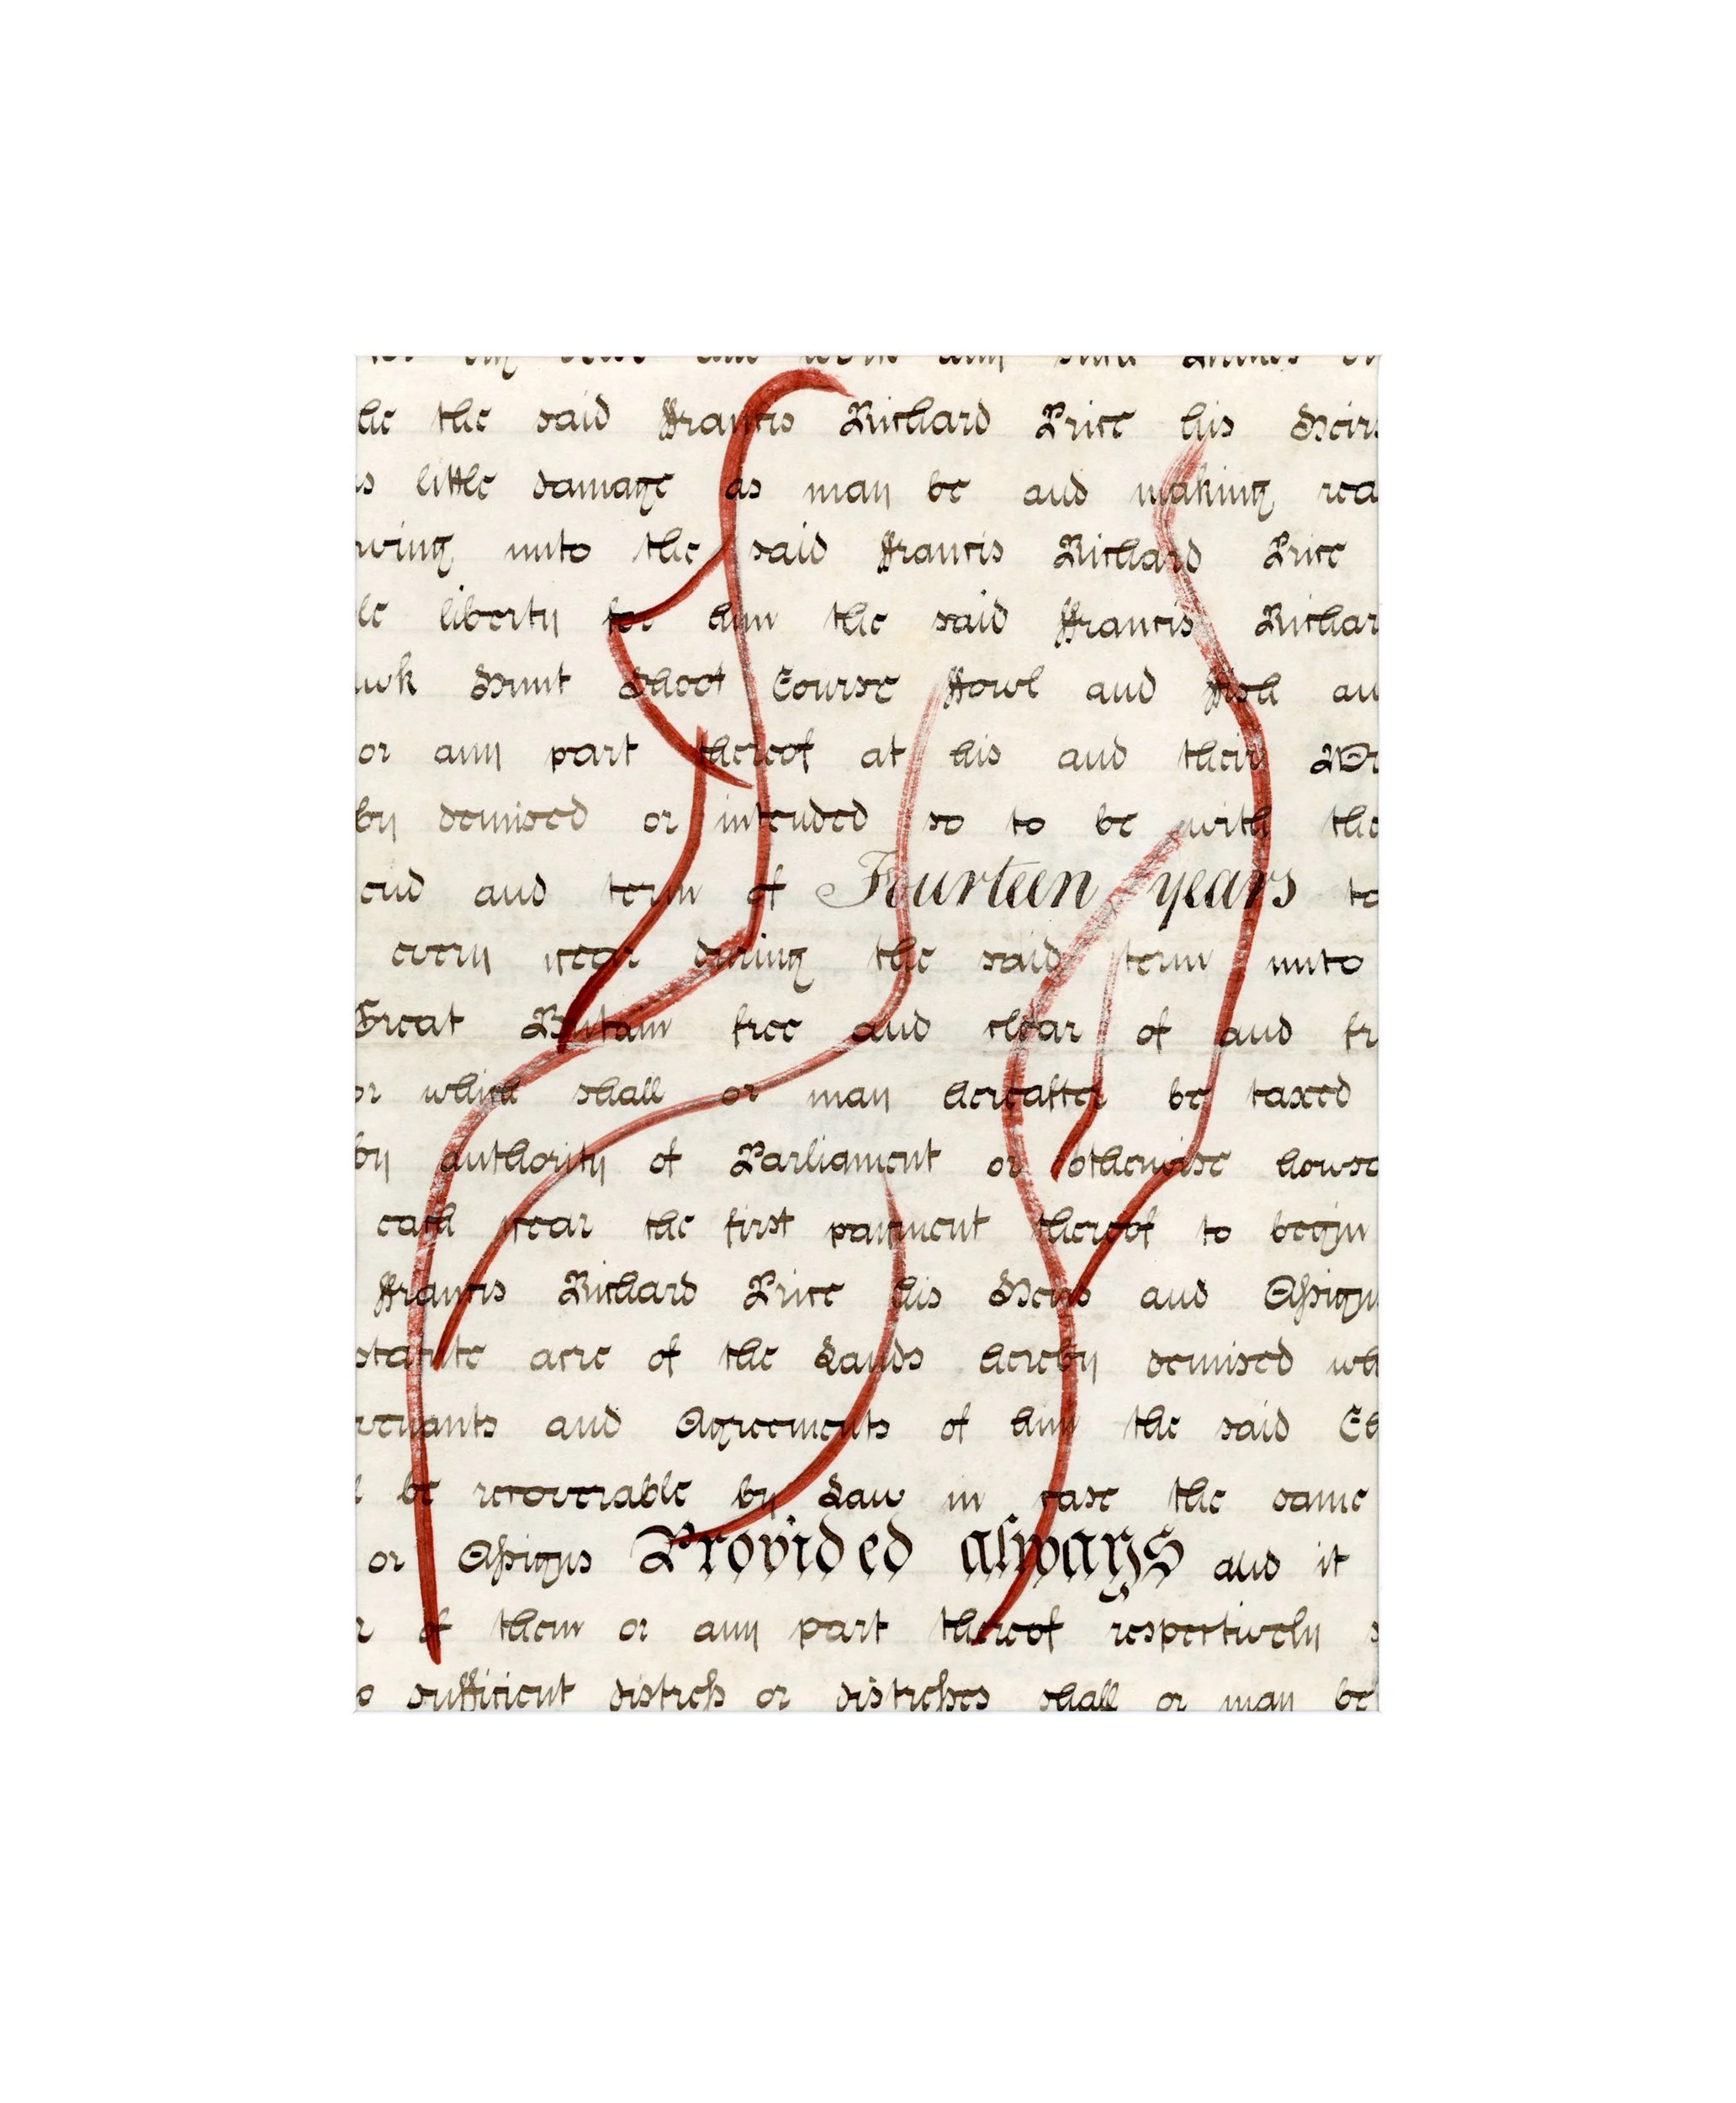 he the said Francis Richard Price his Heirs
little damage as may be and making rea
ving unto the said Francis Richard Price
le liberty for him the said Francis Richar
wk Hunt Shoot Course Fowl and Fish an
or any part thereof at his and their
by demised or intended so to be with the
end and term of Fourteen years to
every year during the said term unto
Great Britain free and clear of and fr
or which shall or may hereafter be taxed
by authority of Parliament or otherwise howso
each year the first payment thereof to begin
Francis Richard Price his Heirs and Assigns
statute acre of the Lands hereby demised wh
venants and Agreements of him the said
be recoverable by Law in case the same
or Assigns Provided always and it
of them or any part thereof respectively
sufficient distress or distresses shall or may be